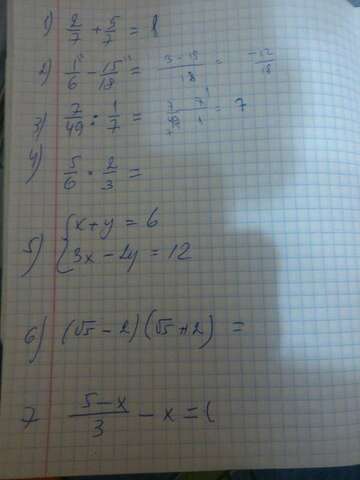 1) 2/7 + 5/7 = 1
2) 1/6 - 15/18 = 3-15/18 = -12/18
3) 7/49 : 1/7 = 7/49 7/1 = 7
4) 5/6 · 2/3 =
5) { x+y = 6
3x - 2y = 12
6) (√5 - 2)(√5 + 2) =
7 5-x/3 - x = 1